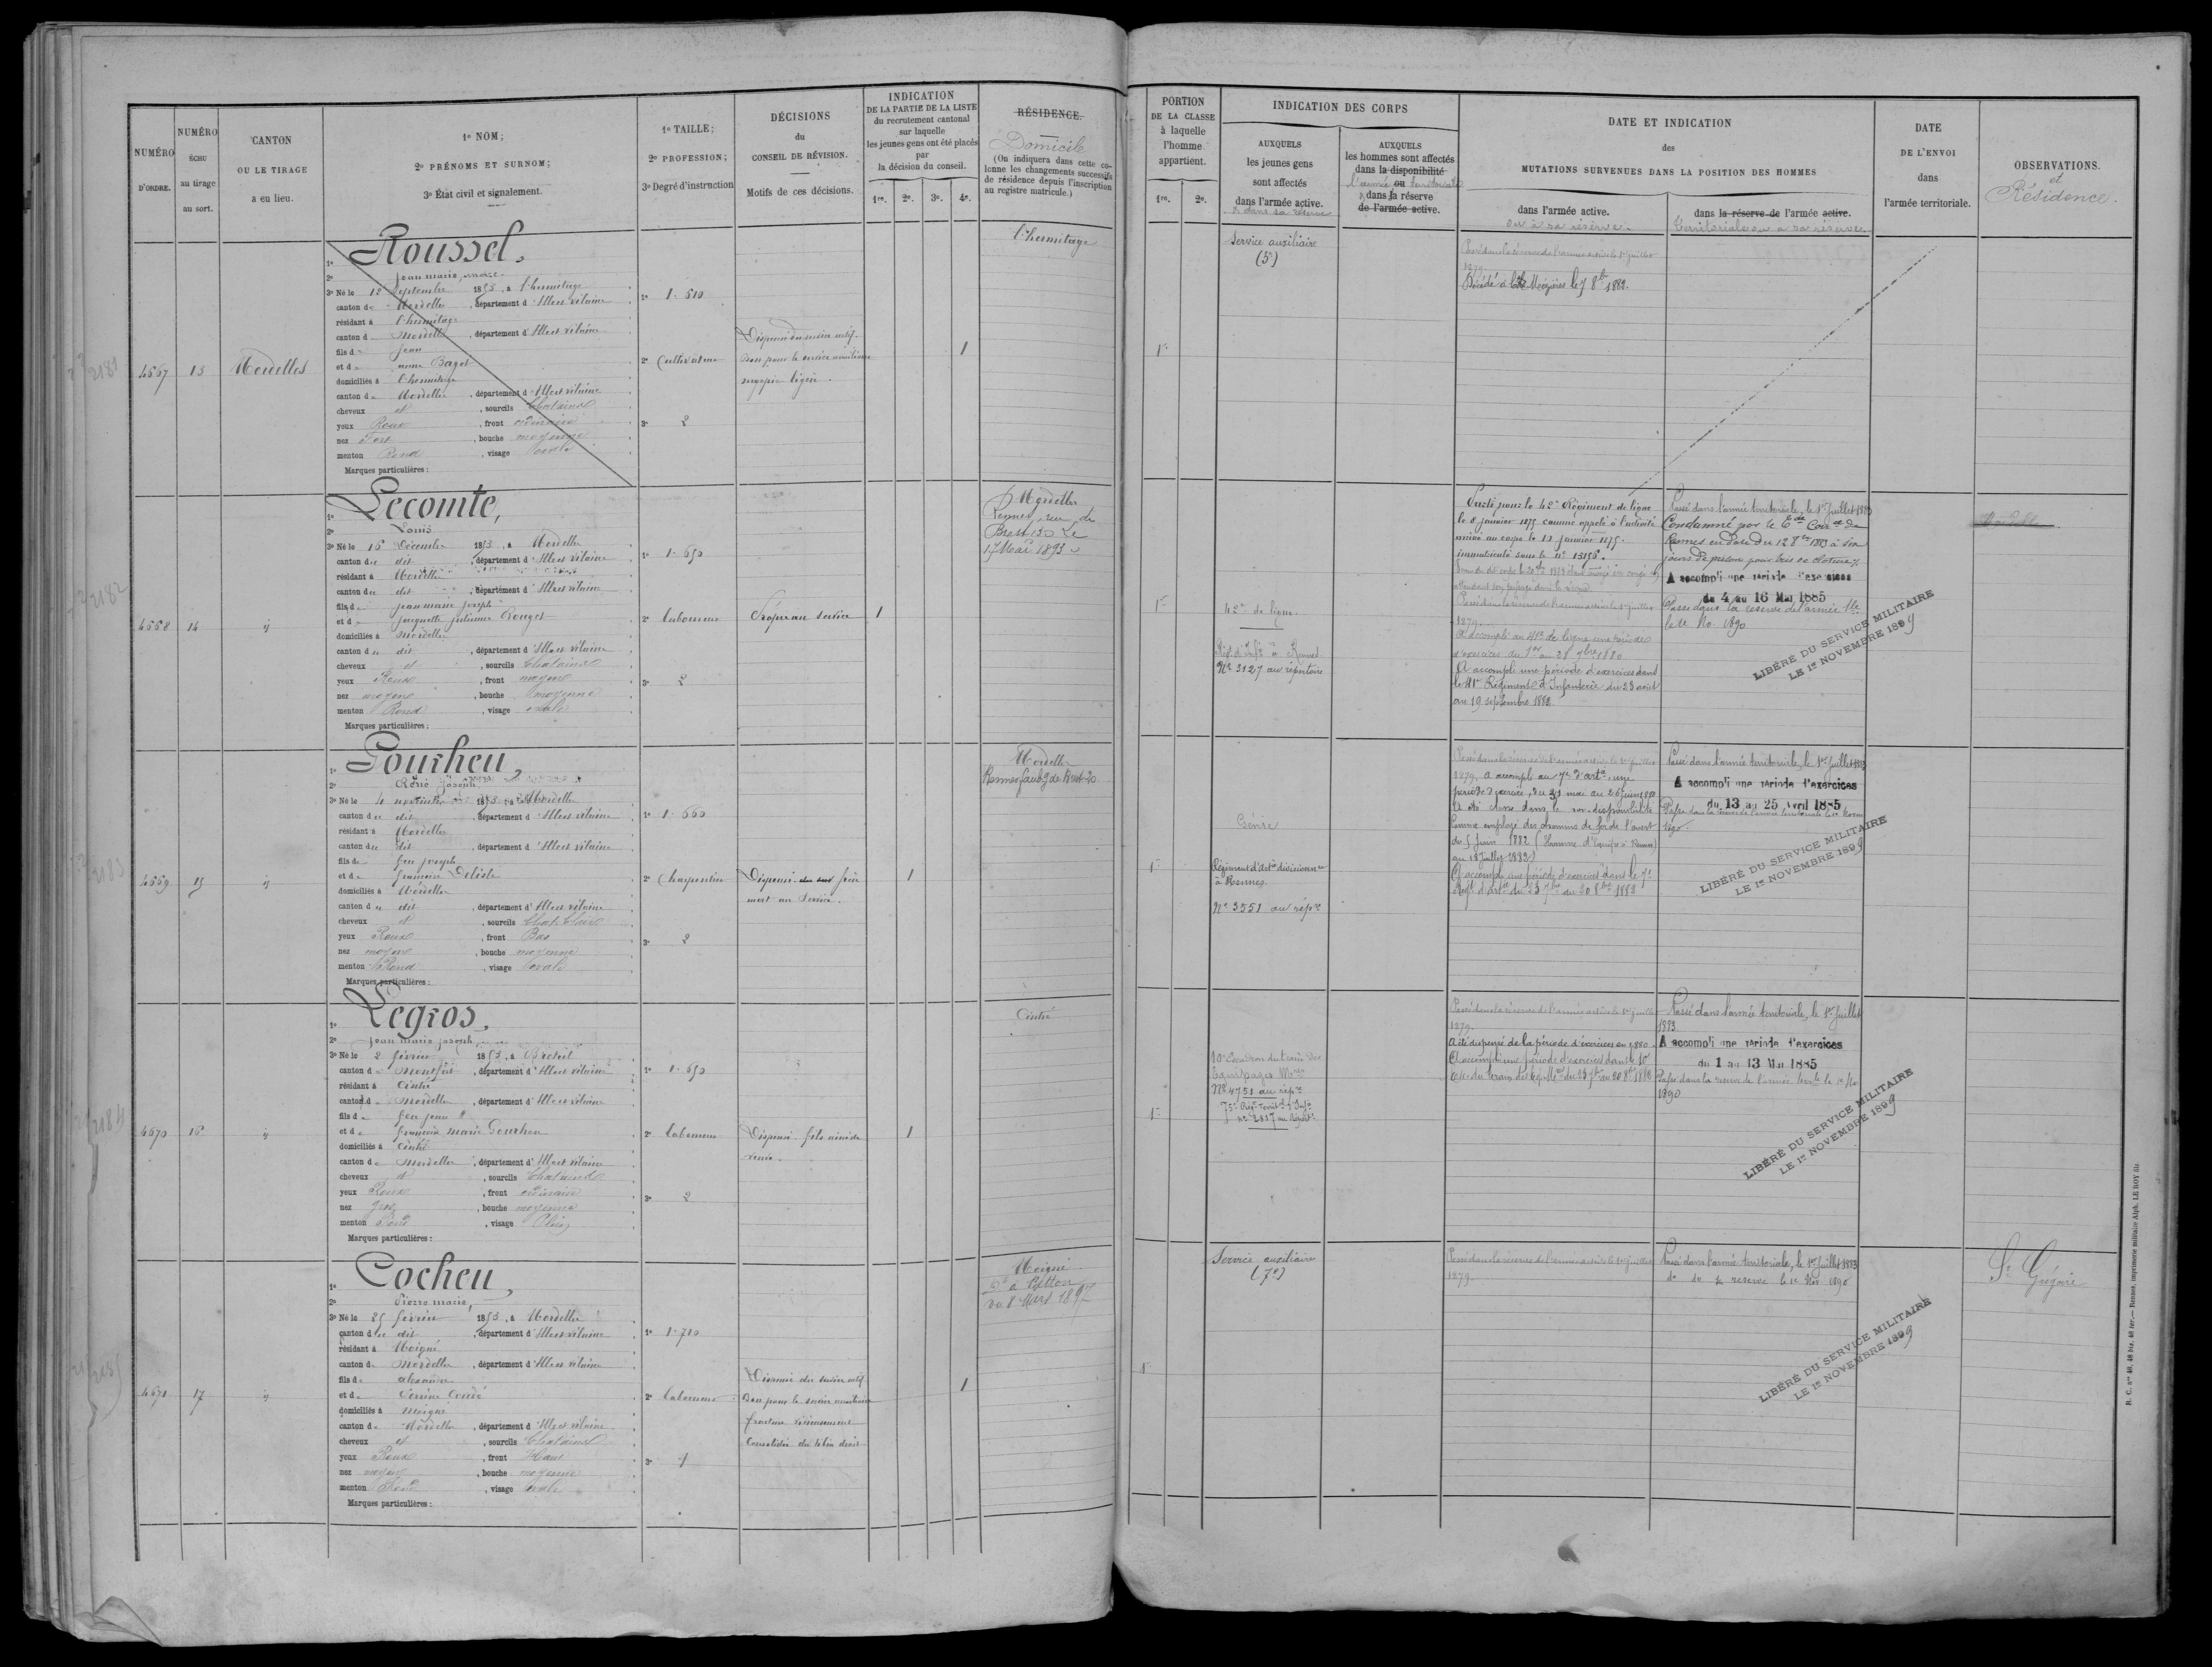 NUMÉRO D'ORDRE.
NUMÉRO ÉCHU au tirage au sort.
CANTON OU LE TIRAGE a eu lieu.
1º NOM;
2º PRÉNOMS ET SURNOM;
3º État civil et signalement.
1º TAILLE;
2º PROFESSION;
3º Degré d'instruction
DÉCISIONS du CONSEIL DE RÉVISION.
Motifs de ces décisions.
INDICATION DE LA PARTIE DE LA LISTE du recrutement cantonal sur laquelle les jeunes gens ont été placés par la décision du conseil.
1re. 2e. 3e. 4e.
RÉSIDENCE.
Domicile
(On indiquera dans cette colonne les changements successifs de résidence depuis l'inscription au registre matricule.)
PORTION DE LA CLASSE à laquelle l'homme appartient.
1re. 2e.
INDICATION DES CORPS
AUXQUELS les jeunes gens sont affectés dans l'armée active.
& dans sa réserve
AUXQUELS les hommes sont affectés dans la disponibilité ou dans la réserve de l'armée active.
l'armée territoriale
DATE ET INDICATION des MUTATIONS SURVENUES DANS LA POSITION DES HOMMES
dans l'armée active.
ou à sa réserve.
dans la réserve de l'armée active.
territoriale ou a sa réserve
DATE DE L'ENVOI dans l'armée territoriale.
OBSERVATIONS.
et
Résidence.
4667
13
Mordelles
1º Roussel,
2º Jean marie
3º Né le 12 Septembre 1853, à l'hermitage
canton de Mordelles, département d'Ille et Vilaine
résidant à l'hermitage
canton d Mordelles, département d'Ille et Vilaine
fils de Jean
et de anne Bagot
domiciliés à l'hermitage
canton de Mordelles, département d'Ille et Vilaine
cheveux et, sourcils Chatains
yeux Roux, front ordinaire
nez Fort, bouche moyenne
menton Rond, visage ovale
Marques particulières:
1º 1.510
2º Cultivateur
3º 2
Dispensé du service actif.
Bon pour le service auxiliaire
myopie légère.
1
l'hermitage
1re
Service auxiliaire
(5e)
Passé dans la réserve de l'armée active le 1er juillet
1879.
Décédé à Mézières le 7 8bre 1882.
4668
14
ij
1º Lecomte,
2º Louis
3º Né le 16 Décembre 1853, à Mordelles
canton du dit, département d'Ille et Vilaine
résidant à Mordelles
canton du dit, département d'Ille et Vilaine
fils de jean marie joseph
et de jacquette julienne Rouget
domiciliés à Mordelles
canton du dit, département d'Ille et Vilaine
cheveux et, sourcils Chatains
yeux Roux, front moyen
nez moyen, bouche moyenne
menton Rond, visage ovale
Marques particulières:
1º 1.650
2º laboureur
3º 2
Propre au service
1
Mordelles
Rennes, rue de
Brest 130 le
17 Mai 1893
1re
42e de ligne
Régt d'Infie à Rennes
Nº 3127 au répertoire
Parti pour le 42e Régiment de ligne
le 8 janvier 1875 comme appelé à l'activité
arrivé au corps le 13 janvier 1875.
immatriculé sous le nº 13156.
Passé dans la réserve de l'armée active le 1er juillet
1879.
A accompli au 41e de ligne une période
d'exercices du 1er au 28 7bre 1880
A accompli une période d'exercices dans
le 41e Régiment d'Infanterie du 23 août
au 19 septembre 1882.
Passé dans l'armée territoriale, le 1er Juillet 1883
Condamné par le de
Rennes en date du 12 8bre 1883 à six
jours de prison pour bris de cloture
A accompli une période d'exercices
du 4 au 16 Mai 1885
Passé dans la réserve de l'armée tle
le 1er No. 1890
LIBÉRÉ DU SERVICE MILITAIRE
LE 1er NOVEMBRE 1899
4669
15
ij
1º Gourheu,
2º René Joseph
3º Né le 4 1853, à Mordelles
canton du dit, département d'Ille et Vilaine
résidant à Mordelles
canton du dit, département d'Ille et Vilaine
fils de feu joseph
et de françoise Deliste
domiciliés à Mordelles
canton du dit, département d'Ille et Vilaine
cheveux et, sourcils Chat. Clairs
yeux Roux, front Bas
nez moyen, bouche moyenne
menton Rond, visage ovale
Marques particulières:
1º 1.660
2º Charpentier
3º 2
Dispensé frère
mort au Service.
1
Mordelles
Rennes, faubg de Brest 20
1re
Génie
Régiment d'Artie divisionre
à Rennes.
Nº 3551 au répre
Passé dans la réserve de l'armée active le 1er juillet
1879, a accompli au 7e d'artie une
période d'exercices du 31 mai au 26 juin 1880
A été classé dans la non-disponibilité
comme employé des chemins de fer de l'ouest
du 5 Juin 1882 (Homme d'équipe à Rennes)
au 18 Juillet 1882)
A accompli une période d'exercices dans le 7e
Régt d'artie du 23 7bre au 20 8bre 1882
Passé dans l'armée territoriale, le 1er Juillet 1883
A accompli une période d'exercices
du 13 au 25 Avril 1885
Passé dans la réserve de l'armée territoriale le 1er Novem
1890.
LIBÉRÉ DU SERVICE MILITAIRE
LE 1er NOVEMBRE 1899
4670
16
ij
1º Legros,
2º Jean marie joseph
3º Né le 2 février 1853, à Breteil
canton de Montfort, département d'Ille et Vilaine
résidant à Cintré
canton d Mordelles, département d'Ille et Vilaine
fils de feu jean
et de françoise marie Gourheu
domiciliés à Cintré
canton de Mordelles, département d'Ille et Vilaine
cheveux et, sourcils Chatains
yeux Roux, front ordinaire
nez gros, bouche moyenne
menton Rond, visage Plein
Marques particulières:
1º 1.650
2º laboureur
3º 2
Dispensé fils aîné de
veuve.
1
Cintré
1re
10e Escadron du train des
Equipages Mres
Nº 4751 au répre
75e Régt Territal d'Infie
nº 2817 au Répert.
Passé dans la réserve de l'armée active le 1er juillet
1879.
A été dispensé de la période d'exercices en 1880.
A accompli une période d'exercices dans le 10e
Esc. du train des Eq. Mres du 23 7bre au 20 8bre 1882
Passé dans l'armée territoriale, le 1er Juillet
1883.
A accompli une période d'exercices
du 1 au 13 Mai 1885
Passé dans la réserve de l'armée terrle le 1er No
1890
LIBÉRÉ DU SERVICE MILITAIRE
LE 1er NOVEMBRE 1899
4671
17
ij
1º Cocheu,
2º Pierre marie,
3º Né le 25 février 1853, à Mordelles
canton du dit, département d'Ille et Vilaine
résidant à Moigné
canton de Mordelles, département d'Ille et Vilaine
fils de alexandre
et de
domiciliés à Moigné
canton de Mordelles, département d'Ille et Vilaine
cheveux et, sourcils Chatains
yeux Roux, front Haut
nez moyen, bouche moyenne
menton Rond, visage ovale
Marques particulières:
1º 1.710
2º laboureur
3º 1
Dispensé du service actif
Bon pour le service auxiliaire
fracture vicieusement
consolidée du tibia droit
1
Moigné
Dt à Patton
du 8 Mars 1897
1re
Service auxiliaire
(7e)
Passé dans la réserve de l'armée active le 1er juillet
1879.
Passé dans l'armée territoriale, le 1er Juillet 1883
do do réserve le 1er Nov. 1890
LIBÉRÉ DU SERVICE MILITAIRE
LE 1er NOVEMBRE 1899
St Grégoire
2181
2182
2183
2184
2185
R. C. nos 48, 48 bis, 48 ter. — Rennes, imprimerie militaire Alph. LE ROY fils